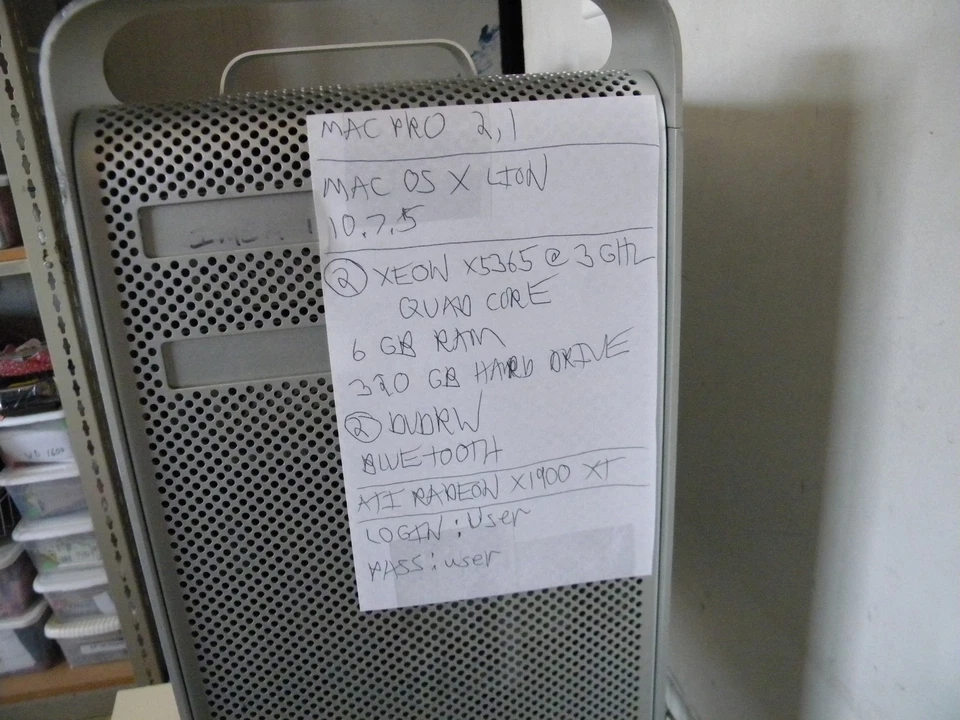 MAC PRO 2,1
MAC OS X LION
10.7.5
2 XEON X5365 @ 3 GHZ
QUAD CORE
6 GB RAM
320 GB HARD DRIVE
2 DVDRW
BLUETOOTH
ATI RADEON X1900 XT
LOGIN: User
PASS: user